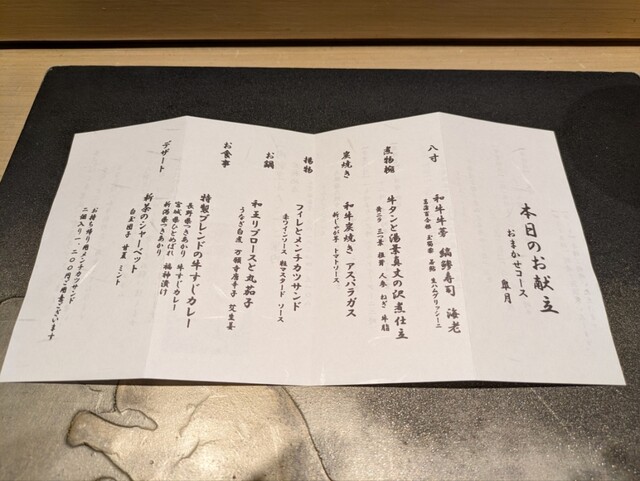 本日のお献立
おまかせコース
皐月
八寸
和牛牛蒡 縞鯵寿司 海老
煮物椀
牛タンと湯葉真丈の沢煮仕立
黄ニラ 三つ葉 椎茸 人参 ねぎ 牛脂
炭焼き
和牛炭焼き アスパラガス
新じゃが芋 トマトソース
揚物
フィレとメンチカツサンド
赤ワインソース 粒マスタード ソース
お鍋
和王リブロースと丸茄子
うなぎ白煮 万願寺唐辛子
お食事
特製ブレンドの牛すじカレー
長野県つきあかり 牛すじカレー
宮城県ひとめぼれ 福神漬け
新潟県つきあかり
デザート
新茶のシャーベット
白玉団子 甘夏 ミント
お持ち帰り用メンチカツサンド
二個入り一、二〇〇円ご用意ございます